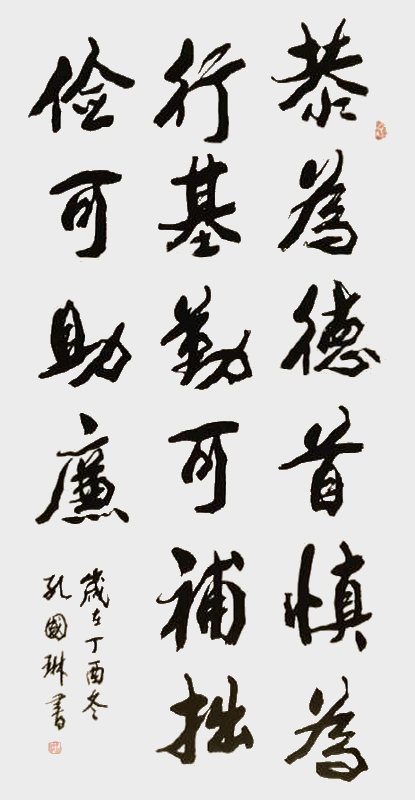 恭為德首慎為
行基勤可補拙
俭可助廉
歲在丁酉冬
孔國琳書